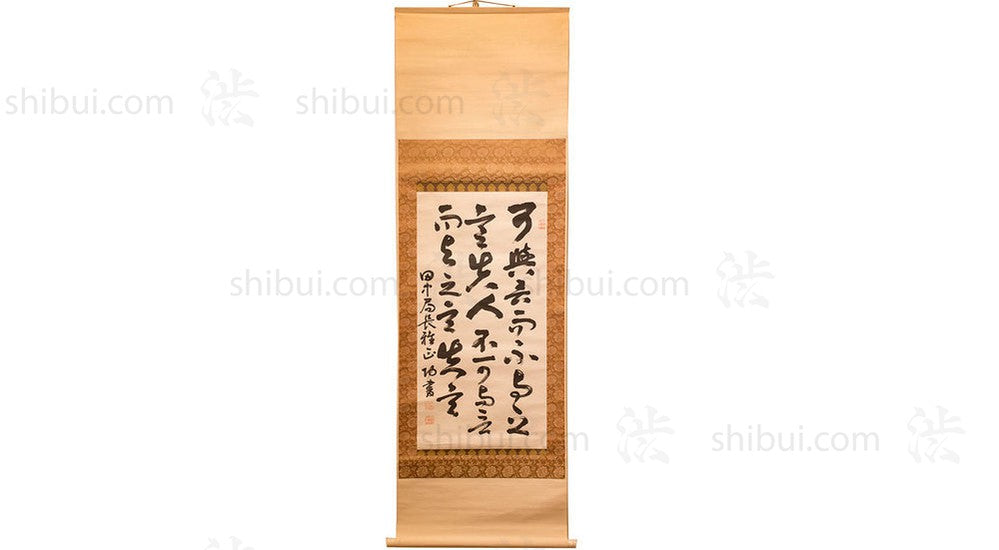 可與言而不与之
言失人不可与言
而与之言失言
田中局長雅正 書
shibui.com 渋 shibui.com 渋
shibui.com shibui.com 渋
渋 shibui.com 渋